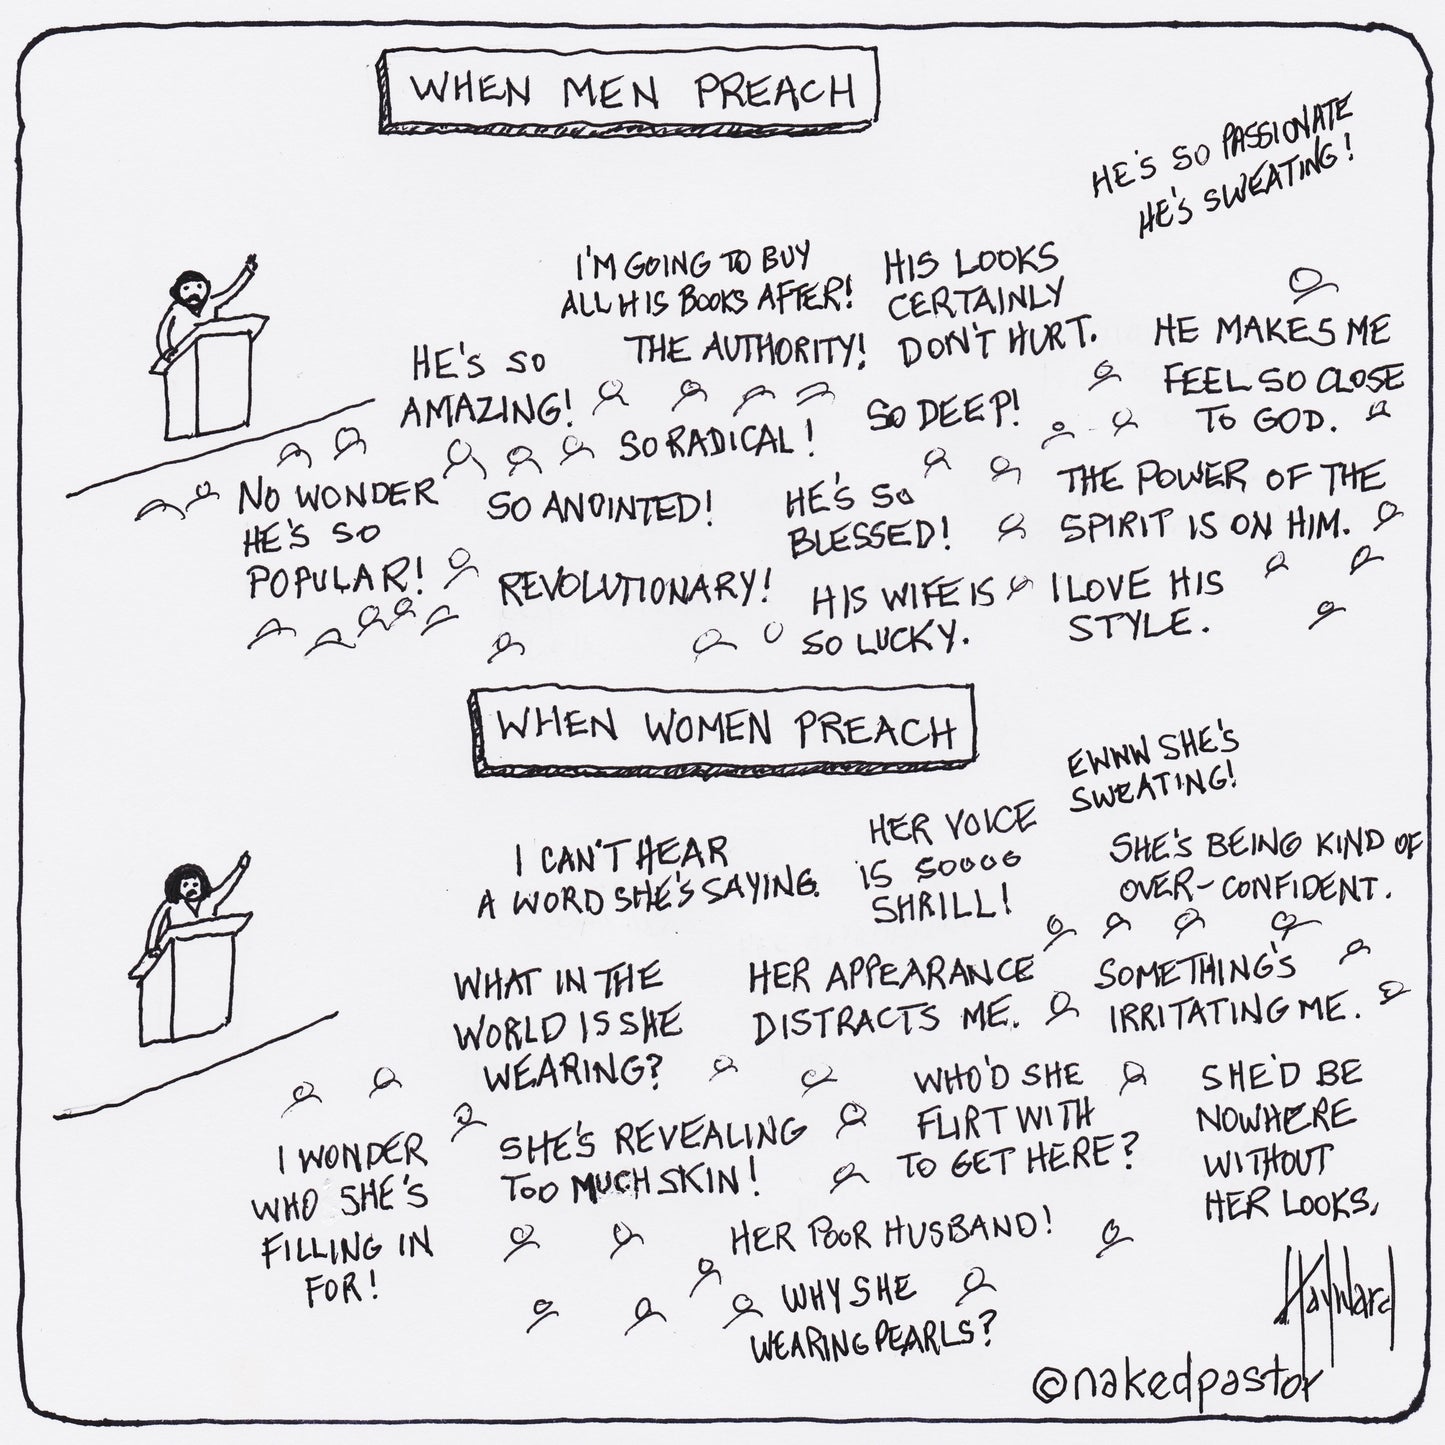 WHEN MEN PREACH
HE'S SO PASSIONATE
HE'S SWEATING!
I'M GOING TO BUY
ALL HIS BOOKS AFTER!
HIS LOOKS
CERTAINLY
DON'T HURT.
THE AUTHORITY!
HE MAKES ME
FEEL SO CLOSE
TO GOD.
HE'S SO
AMAZING!
SO DEEP!
SO RADICAL!
NO WONDER
HE'S SO
POPULAR!
SO ANOINTED!
HE'S SO
BLESSED!
THE POWER OF THE
SPIRIT IS ON HIM.
REVOLUTIONARY!
HIS WIFE IS
SO LUCKY.
I LOVE HIS
STYLE.
WHEN WOMEN PREACH
EWWW SHE'S
SWEATING!
I CAN'T HEAR
A WORD SHE'S SAYING.
HER VOICE
IS SOOOO
SHRILL!
SHE'S BEING KIND OF
OVER-CONFIDENT.
WHAT IN THE
WORLD IS SHE
WEARING?
HER APPEARANCE
DISTRACTS ME.
SOMETHING'S
IRRITATING ME.
WHO'D SHE
FLIRT WITH
TO GET HERE?
SHE'D BE
NOWHERE
WITHOUT
HER LOOKS.
I WONDER
WHO SHE'S
FILLING IN
FOR!
SHE'S REVEALING
TOO MUCH SKIN!
HER POOR HUSBAND!
WHY SHE
WEARING PEARLS?
Hayward
©nakedpastor